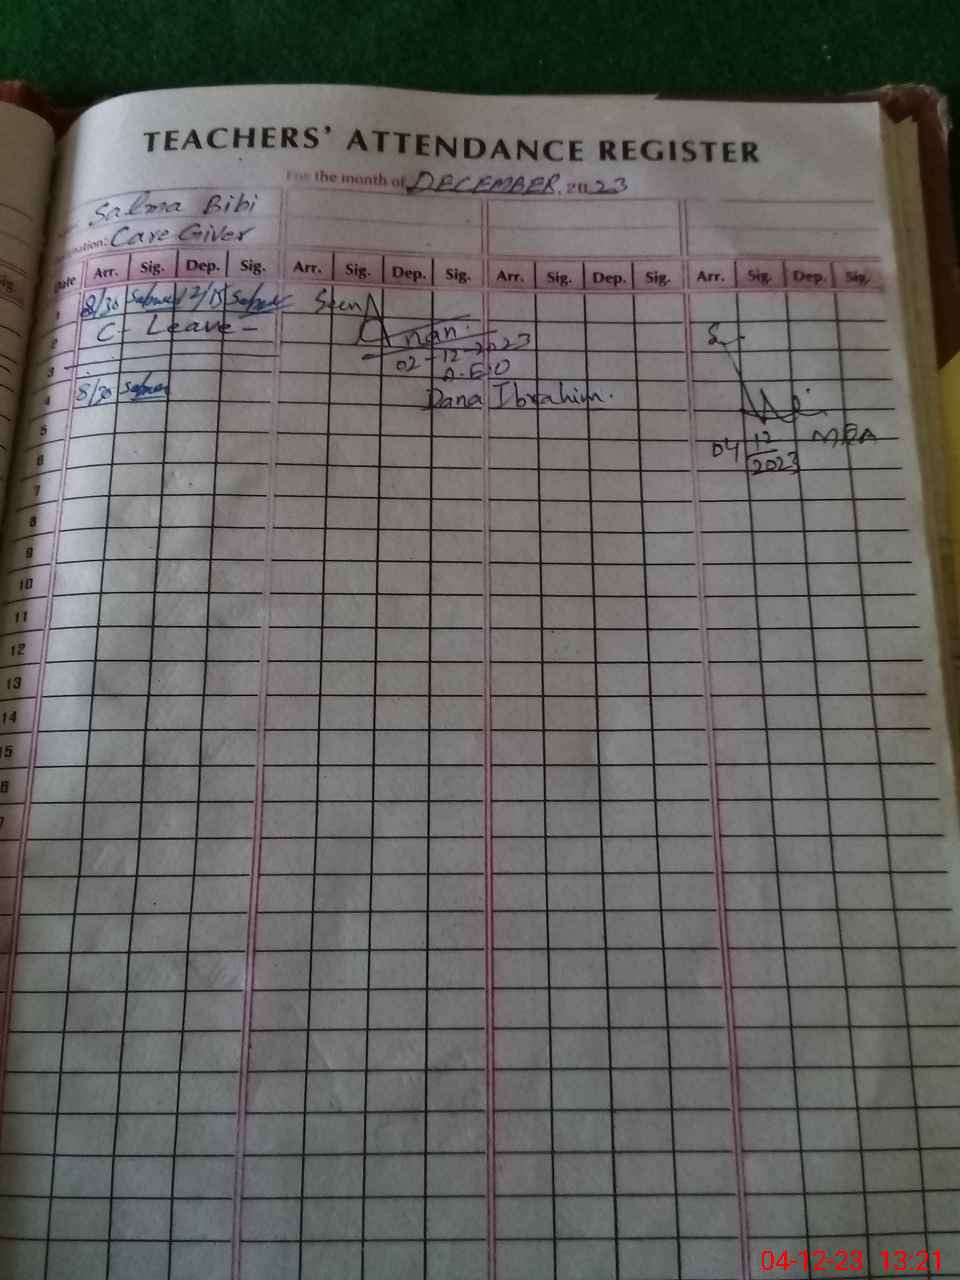 TEACHERS' ATTENDANCE REGISTER
For the month of DECEMBER, 2023
Salma Bibi
Care Giver
Date Arr. Sig. Dep. Sig. Arr. Sig. Dep. Sig. Arr. Sig. Dep. Sig. Arr. Sig. Dep. Sig.
1 8/30 Salma 12/15 Salma Seen
2 C- Leave -
02-12-2023
3
D.E.O
4 8/30 Salma Dana Ibrahim.
5
04 12 MEA
2023
6
7
8
9
10
11
12
13
14
15
6
7
04-12-23 13:21